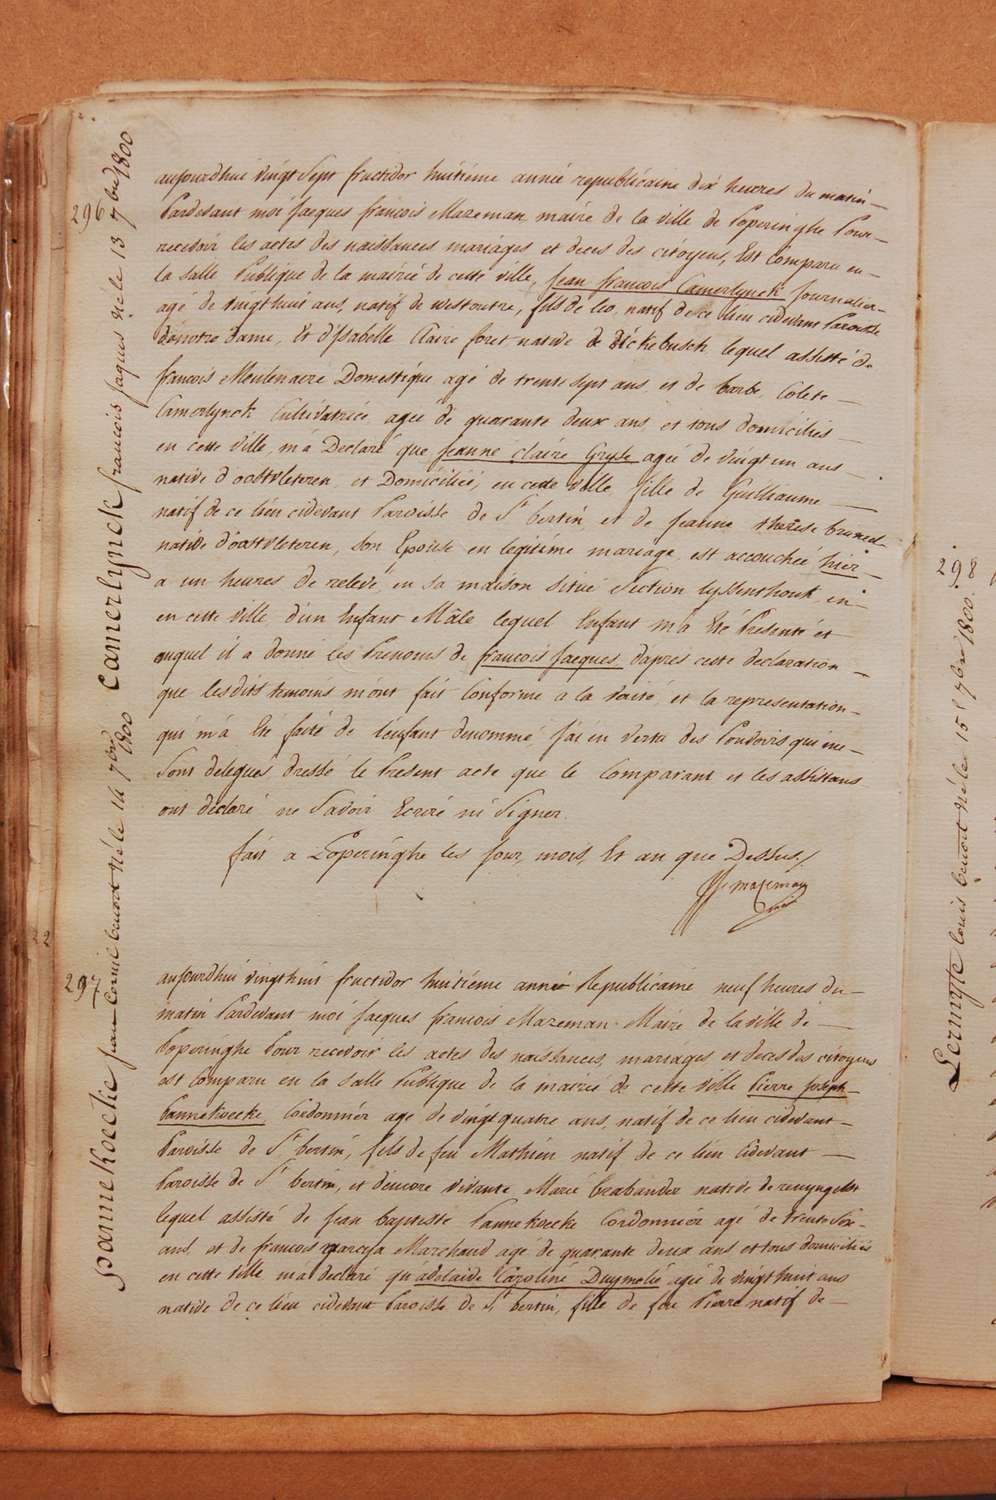 296
Camerlynck francois jaques né le 13 7bre 1800
aujourdhui vingt Sept fructidor huitiéme année republicaine dix heures du matin
Pardevant moi Jacques francois Mazeman maire de la ville de Poperinghe Pour
recevoir les actes des naissances mariages et deces des citoyens, Est comparu en
la salle Publique de la mairie de cette ville, Jean francois Camerlynck Journalier
agé de vingthuit ans, natif de westoutre, fils de leo, natif de ce lieu cidevant Paroisse
de notre dame, et d'Isabelle Claire foret native de dickebusch lequel assisté de
francois Meulenaere Domestique agé de trente sept ans et de barbe Colete
Camerlynck Cultivatrice agée de quarante deux ans et tous domiciliés
en cette ville, m'a Declaré que Jeanne Claire Gryse agée de vingt un ans
native d'oostvleteren et Domiciliée, en cette ville fille de Guilliaume
natif de ce lieu cidevant Paroisse de St bertin et de Jeanne therese
native d'oostvleteren, Son Epouse en legitime mariage est accouchée hier
a un heures de relevé, en sa maison situé Section en
en cette ville, d'un Enfant Mâle lequel Enfant m'a Eté Presenté et
auquel il a donné les Prenoms de francois Jacques d'apres cette declaration
que lesdits temoins m'ont fait Conforme a la verité et la representation
qui m'a Eté faité de l'enfant denommé, J'ai en vertu des Pouvoirs qui me
Sont delegués dressé le Present acte que le Comparant et les assistans
ont déclaré ne Savoir Ecrire ni Signer.
fait a Poperinghe les Jour, mois, Et an que Dessus/
Mazeman
297
pannekoecke jean Cornil benoit né le 14 7bre 1800
aujourdhui vingthuit fructidor huitiéme année Republicaine neuf heures du
matin Pardevant moi Jacques francois Mazeman Maire de la ville de
Poperinghe Pour recevoir les actes des naissances, mariages et deces des citoyens
est Comparu en la salle Publique de la mairié de cette ville Pierre Joseph
Pannekoecke Cordonnier agé de vingt quatre ans, natif de ce lieu cidevant
Paroisse de St bertin, fils de feu Mathieu natif de ce lieu Cidevant
Paroisse de St bertin, et d'encore vivante Marie brabander native de renyngelst
lequel assisté de Jean baptiste Pannekoecke Cordonnier agé de trente six
ans, et de francois Marchand agé de quarante deux ans et tous domiciliés
en cette ville m'a declaré qu'adelaide Caroline Duymelie agée de vingt huit ans
native de ce lieu cidevant Paroisse de St bertin, fille de feu Pierre natif de
298
Lermyte louis benoit né le 15 7bre 1800.